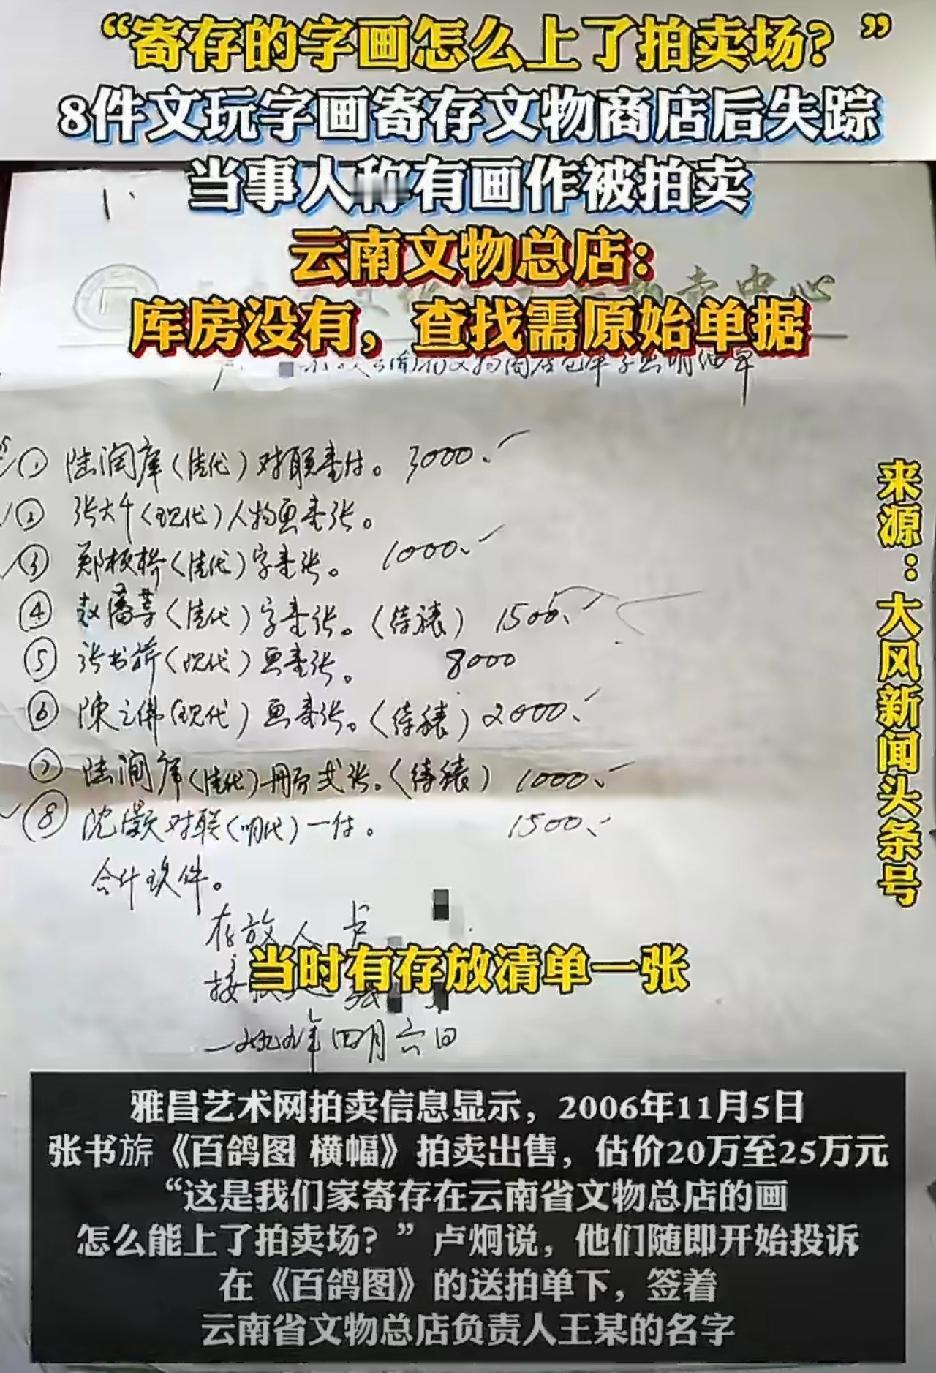 “寄存的字画怎么上了拍卖场？”
8件文玩字画寄存文物商店后失踪
当事人称有画作被拍卖
云南文物总店：
库房没有，查找需原始单据
① 陆润庠（清代）对联壹付。 3000.
② 张大千（现代）人物画壹张。
③ 郑板桥（清代）字壹张。 1000.
④ 赵藩草（清代）字壹张。（待裱） 1500.
⑤ 张书旂（现代）画壹张。 8000
⑥ 陳之佛（现代）画壹张。（待裱） 2000.
⑦ 陆润庠（清代）册页弍张。（待裱） 1000.
⑧ 沈灝对联（明代）一付。 1500.
合计玖件。
存放人 卢
当时有存放清单一张
一九九九年四月六日
来源：大风新闻头条号
雅昌艺术网拍卖信息显示，2006年11月5日
张书旂《百鸽图 横幅》拍卖出售，估价20万至25万元
“这是我们家寄存在云南省文物总店的画
怎么能上了拍卖场？”卢炯说，他们随即开始投诉
在《百鸽图》的送拍单下，签着
云南省文物总店负责人王某的名字